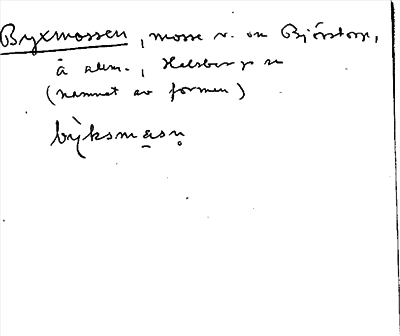 Byxmossen, mosse v. om Björstorp,
å alm., Helsberg
(namnet av formen)
bỳksmåsn̥